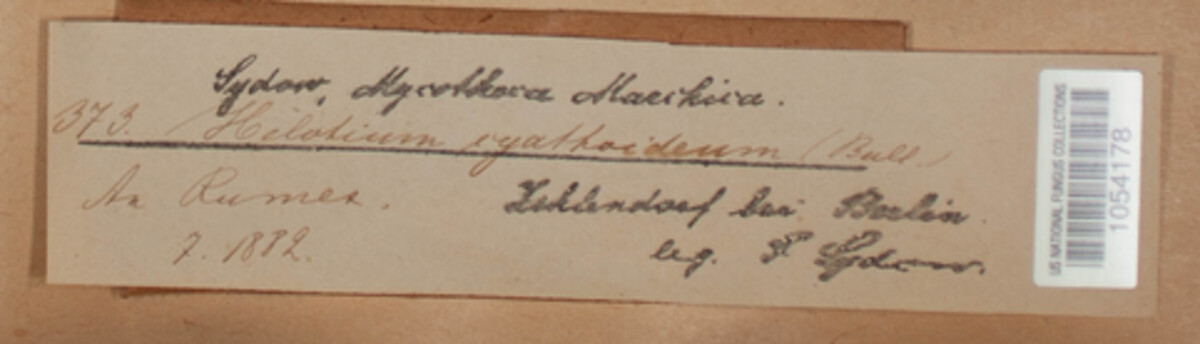 Sydow, Mycotheca Marchica.
373. Helotium cyathoideum (Bull.)
An Rumex.
Zehlendorf bei Berlin.
7. 1882.
leg. P Sydow.
US NATIONAL FUNGUS COLLECTIONS
1054178